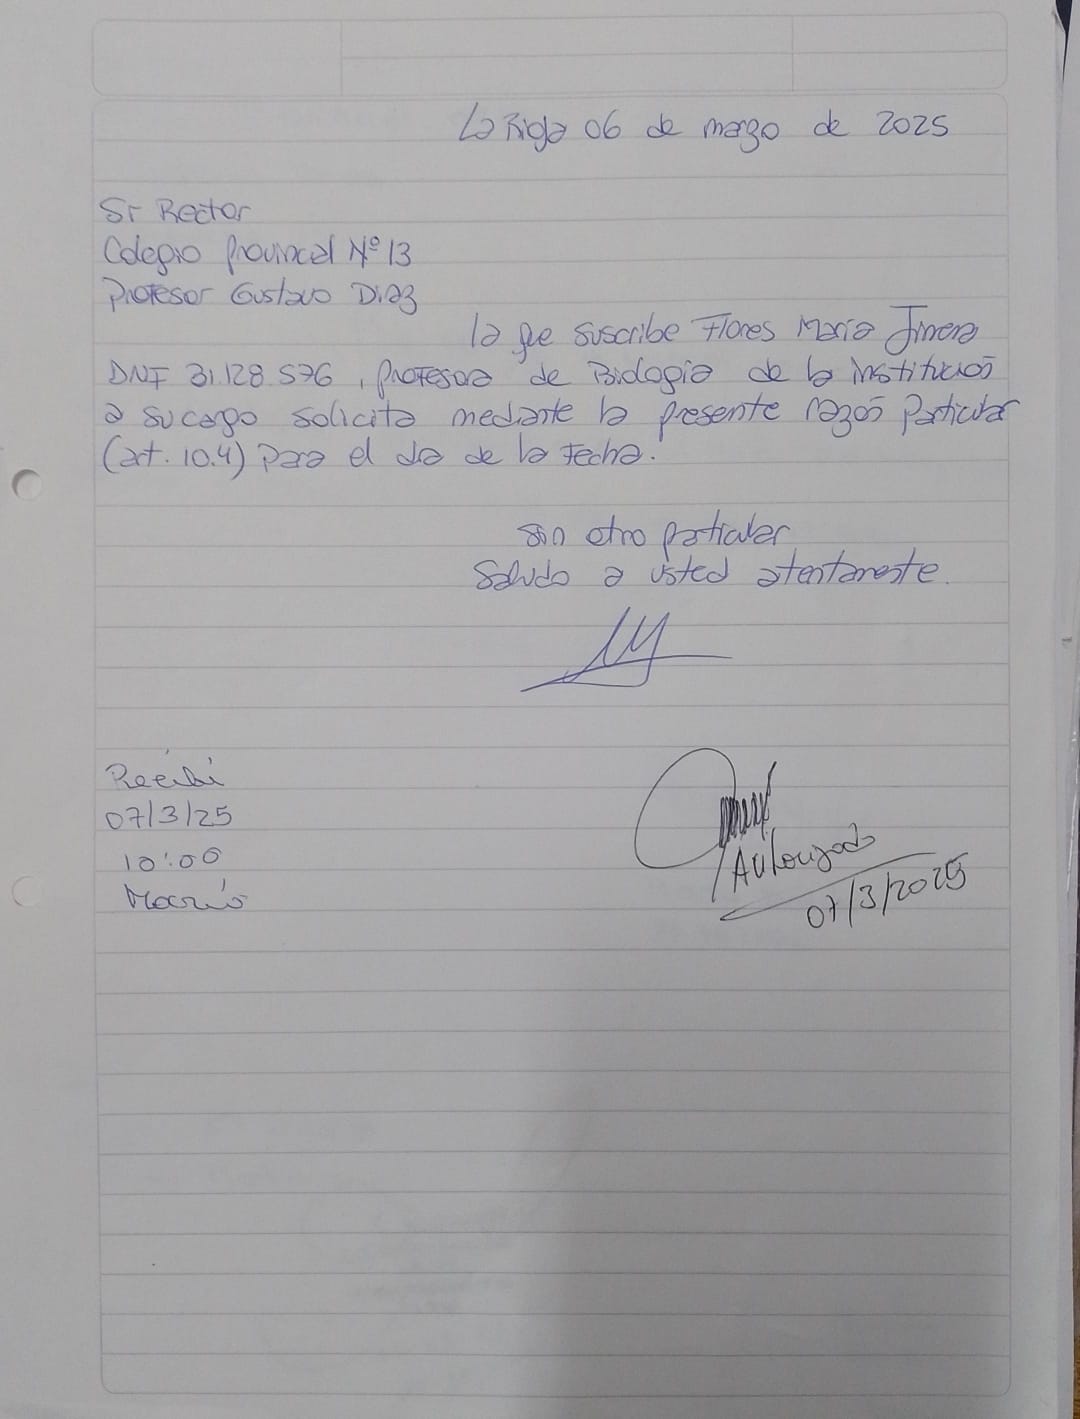 La Rioja 06 de marzo de 2025
Sr Rector
Colegio Provincial Nº 13
Profesor Gustavo Diaz
la que suscribe Flores Maria Jimena
DNI 31.128.576, Profesora de Biologia de la institución
a su cargo solicita mediante la presente razon Particular
(art. 10.4) Para el dia de la Fecha.
Sin otro particular
Saludo a usted atentamente.
Recibí
07/3/25
10:00
Autorizado
07/3/2025